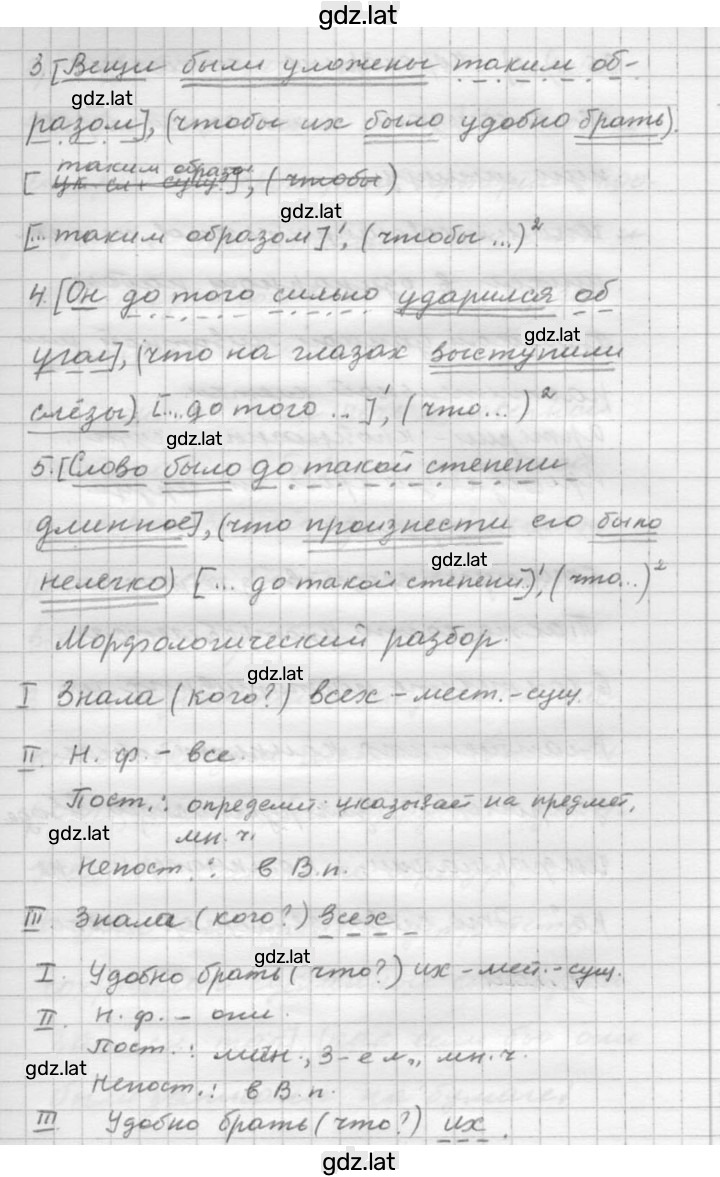 gdz.lat
3. [Вещи были уложены таким об-
gdz.lat
разом], (чтобы их было удобно брать).
таким образо
[ ук. сл + сущ. ], ( чтобы )
gdz.lat
[... таким образом]¹, (чтобы ...)²
4. [Он до того сильно ударился об
gdz.lat
угол], (что на глазах выступили
слёзы) [... до того ... ]¹, (что...)²
gdz.lat
5. [Слово было до такой степени
длинное], (что произнести его было
gdz.lat
нелегко) [... до такой степени]¹, (что...)²
Морфологический разбор.
gdz.lat
I Знала (кого?) всех – мест.-сущ.
II. Н. ф. – все.
Пост.: определит. указывает на предмет,
gdz.lat
мн. ч.
Непост.: в В.п.
III. Знала (кого?) всех
gdz.lat
I. Удобно брать (что?) их – мест.-сущ.
II. Н. ф. – они.
gdz.lat
Пост.: личн., 3-е л., мн. ч.
Непост.: в В.п.
III Удобно брать (что?) их.
gdz.lat